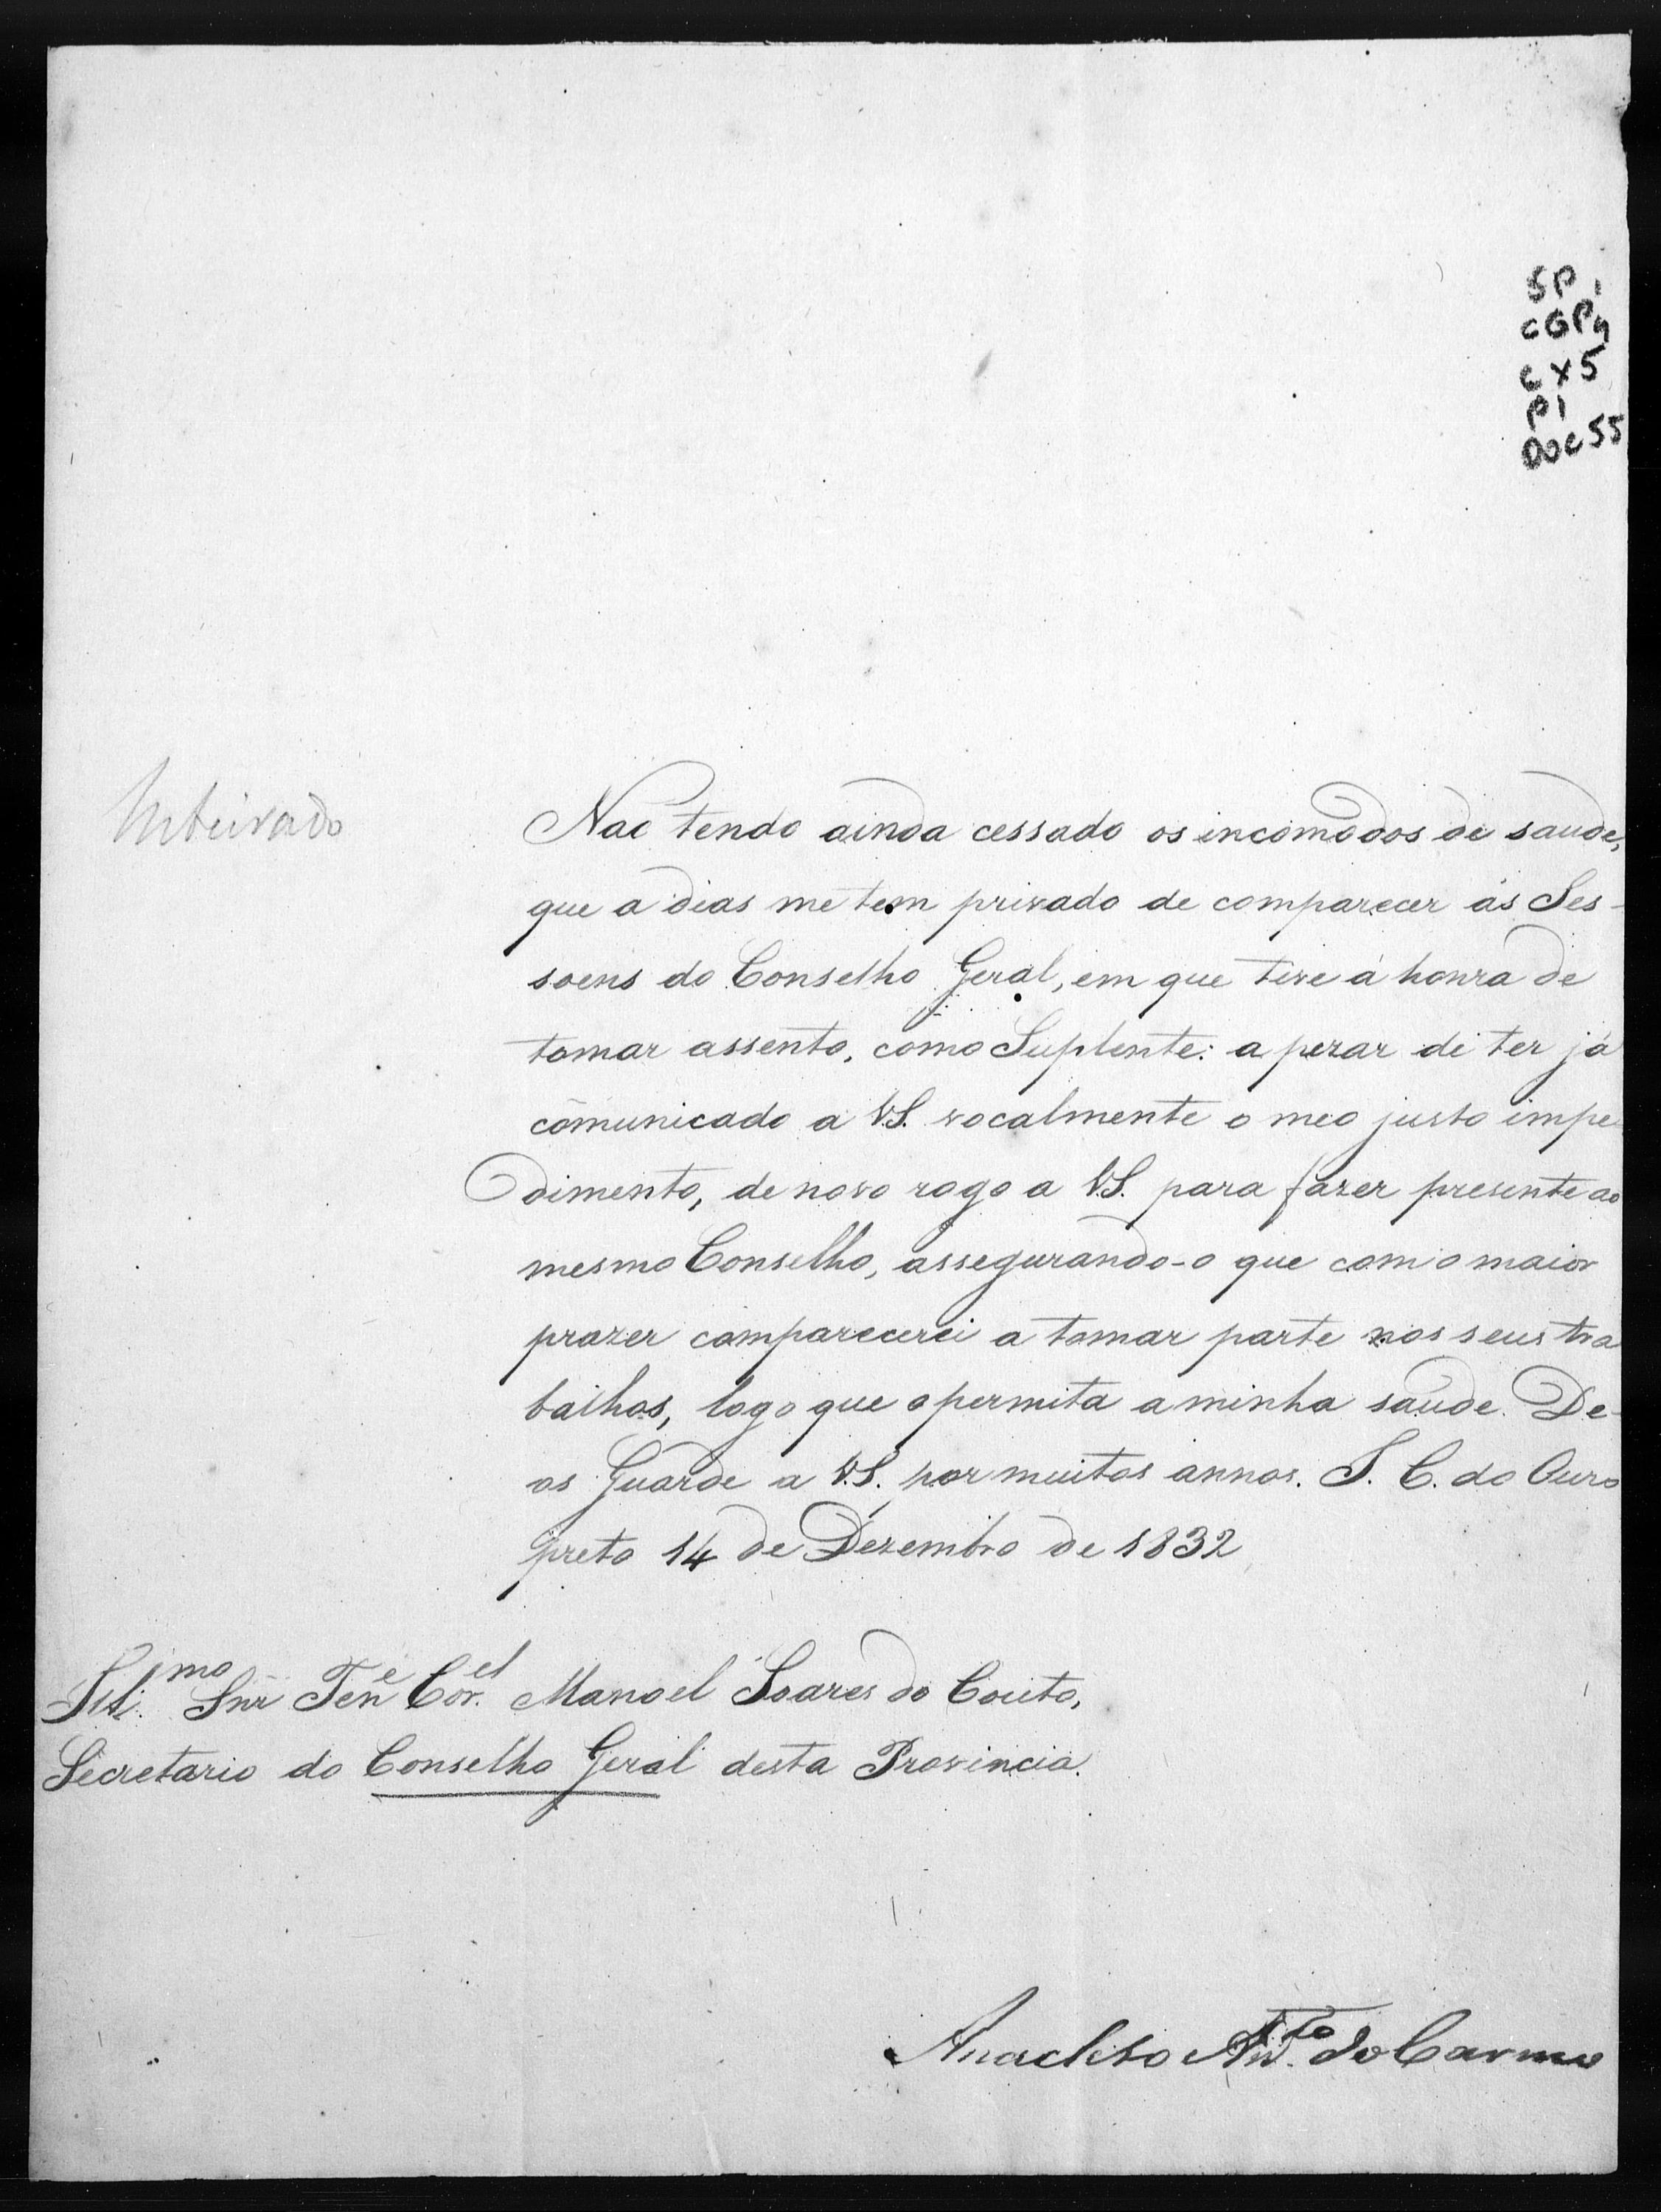 SP
CGP9
CX5
P1
DOC55
Inteirado
Não tendo ainda cessado os incomodos de saude,
que a dias me tem privado de comparecer ás Ses-
soens do Conselho Geral, em que tive á honra de
tomar assento, como Suplente: a pezar de ter já
cõmunicado a V.S. vocalmente o meo justo impe-
dimento, de novo rogo a V.S. para fazer presente ao
mesmo Conselho, assegurando-o que com o maior
prazer comparecerei a tomar parte nos seus tra
balhos, logo que o permita a minha saúde. De-
os Guarde a V.S. por muitos annos. I. C. do Ouro
preto 14 de Dezembro de 1832
Ill.mo Snr Tene Cor.el Manoel Soares do Couto,
Secretario do Conselho Geral desta Provincia.
Anacleto Anto. do Carmo